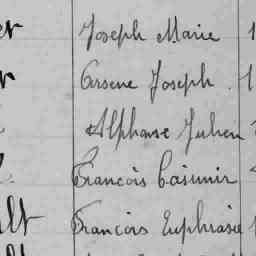 er Joseph Marie 1
r Arsene Joseph. 1
Alphonse Julien
François Casimir
ult François Euphrasie